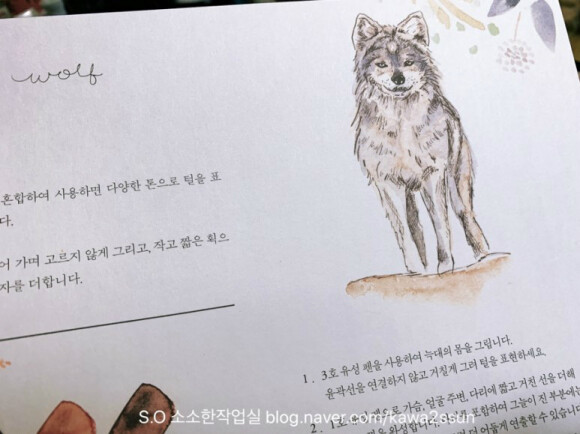 wolf
혼합하여 사용하면 다양한 톤으로 털을 표
다.
어 가며 고르지 않게 그리고, 작고 짧은 획으
자를 더합니다.
1. 3호 유성 펜을 사용하여 늑대의 몸을 그립니다.
윤곽선을 연결하지 않고 거칠게 그려 털을 표현하세요.
2. 1호 가슴, 얼굴 주변, 다리에 짧고 거친 선을 더해
포함하여 그늘이 진 부분에는
더 어둡게 연출할 수 있습니
S.O 소소한작업실 blog.naver.com/kawa2ssun